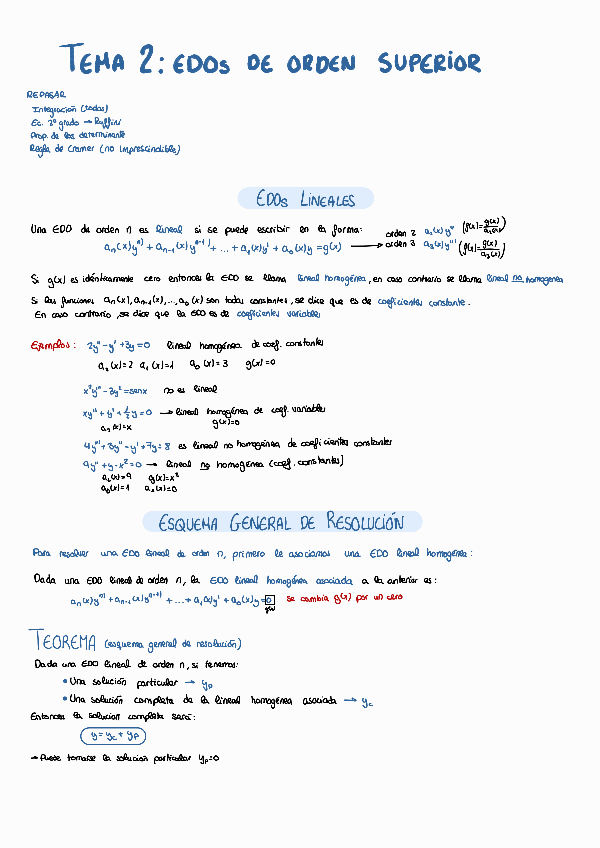 TEMA 2: EDOs DE ORDEN SUPERIOR
REPASAR
Integración (todas)
Ec. 2º grado → Ruffini
Prop. de los determinante
Regla de Cramer (no imprescindible)
EDOs LINEALES
Una EDO de orden n es lineal si se puede escribir en la forma:
orden 2 a₂(x)y''
aₙ(x)yⁿ⁾ + aₙ₋₁(x)yⁿ⁻¹⁾ + ... + a₁(x)y' + a₀(x)y = g(x) → orden 3 a₃(x)y'''
Si g(x) es idénticamente cero entonces la EDO se llama lineal homogénea, en caso contrario se llama lineal no homogénea
Si las funciones aₙ(x), aₙ₋₁(x), ..., a₀(x) son todas constantes, se dice que es de coeficientes constante.
En caso contrario, se dice que la EDO es de coeficientes variables
Ejemplos: 2y'' - y' + 3y = 0 lineal homogénea de coef. constantes
a₂(x)=2 a₁(x)=1 a₀(x)=3 g(x)=0
no es lineal
→ lineal homogénea de coef. variables
aₙ(x)=x g(x)=0
4y''' + 3y'' - y' + 7y = 8 es lineal no homogénea de coeficientes constantes
9y'' + y - x² = 0 → lineal no homogénea (coef. constantes)
a₂(x)=9 g(x)=x²
a₀(x)=1 a₁(x)=0
ESQUEMA GENERAL DE RESOLUCIÓN
Para resolver una EDO lineal de orden n, primero le asociamos una EDO lineal homogénea:
Dada una EDO lineal de orden n, la EDO lineal homogénea asociada a la anterior es:
aₙ(x)yⁿ⁾ + aₙ₋₁(x)yⁿ⁻¹⁾ + ... + a₁(x)y' + a₀(x)y = 0 se cambia g(x) por un cero
g(x)
TEOREMA (esquema general de resolución)
Dada una EDO lineal de orden n, si tenemos:
• Una solución particular → yp
• Una solución completa de la lineal homogénea asociada → yc
Entonces la solución completa será:
y = yc + yp
→ Puede tomarse la solución particular yp=0